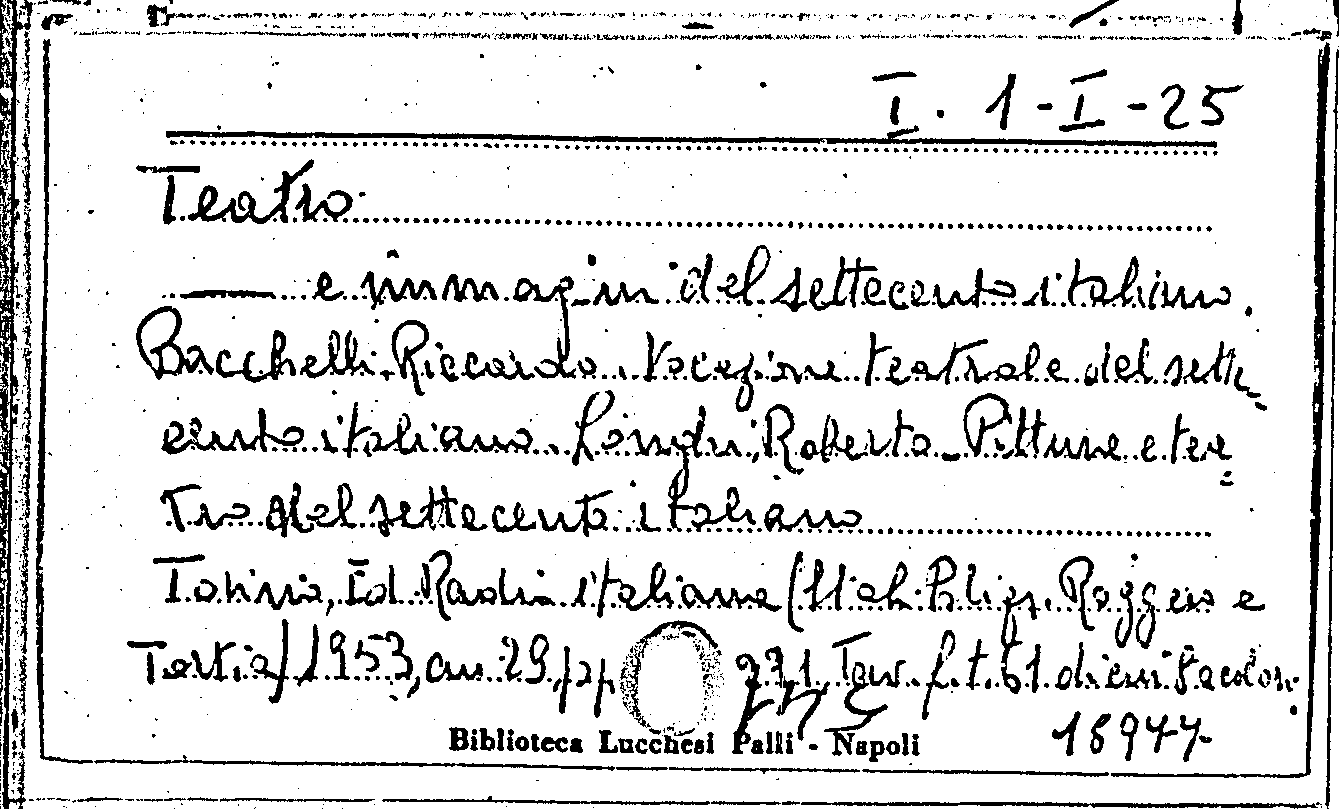 I. 1-I-25
Teatro
—— e immagini del settecento italiano.
Bacchelli, Riccardo. Vocazione teatrale del sette-
cento italiano. Longhi, Roberto - Pitture e tea=
tro del settecento italiano
Torino, Ed. Radio italiana (Stab. Polig. Roggero e
Tortia) 1953, cm. 29, pp. 271. Tav. f.t. 61 di cui 8 a color.
Biblioteca Lucchesi Palli - Napoli
18947